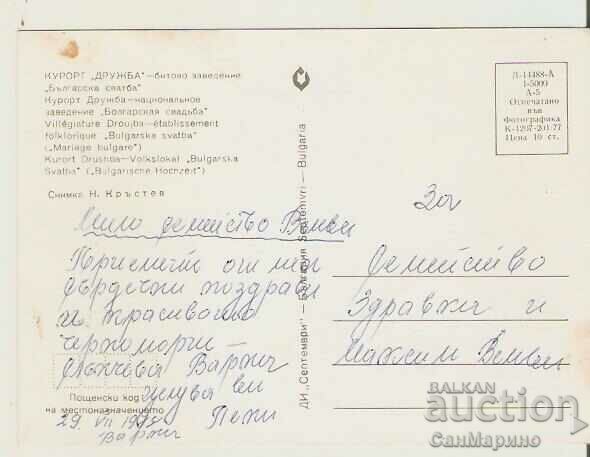 КУРОРТ „ДРУЖБА"—битово заведение
„Българска сватба"
Курорт Дружба—национальное
заведение „Болгарская свадьба"
Villégiature Droujba—établissement
folklorique "Bulgarska svatba"
("Mariage bulgare")
Kurort Drushba—Volkslokal „Bulgarska
Svatba" („Bulgarische Hochzeit")
Снимка Н. Кръстев
Мило семейство
Приемете от мен
сърдечни поздрави
из красивото
черноморие —
слънчева Варна
целува ви
Пепи
29. VII
Варна
Пощенски код
на местоназначението
ДИ „Септември" — България Septemvri — Bulgaria
Д-14488-А
1-5000
А-5
Отпечатано
във
Фотографика
К-1207-201-77
Цена 10 ст.
За
Семейство
Здравка и
Максим
BALKAN
auction
СанМарино